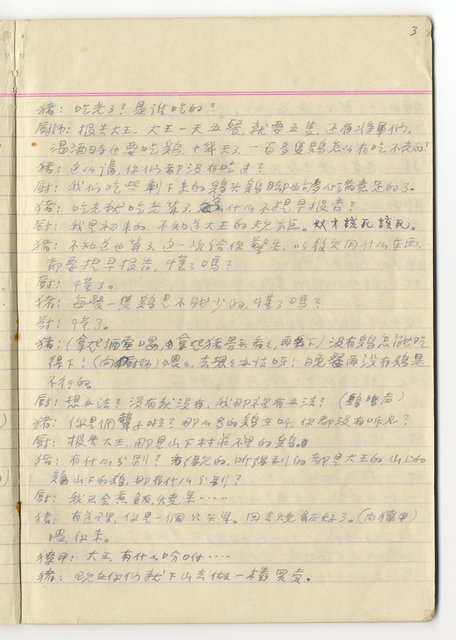 3
猪：吃光了？是谁吃的？
厨师：报告大王，大王一天五餐，就要五隻，还有将軍们，
温酒时也要吃鷄，十幾天，一百多隻鷄怎么有吃不光的？
猪：这么講，你们都没有吃过？
厨：我们吃些剩下来的鷄头鷄脚也就心满意足的了。
猪：吃光就吃光算了，为什么不提早报告？
厨：我是初来的，不知道大王的规矩。奴才該死該死。
猪：不知道也算了，这一次给你警告，以後欠用什么东西
都要提早报告，懂了吗？
厨：懂了。
猪：每餐一隻鷄是不能少的，懂了吗？
厨：懂了。
猪：(拿起酒壶喝，拿起猪骨头看看，再丢下)没有鷄怎能吃
得下！(向厨师)喂，去想个办法呀！日晚餐再没有鷄是
不行的。
厨：想办法？没有就没有，我那里有办法？(鷄啼声)
猪：你是個聾子啦？那么多的鷄在叫，你都没有听见？
厨：报告大王，那是山下村莊裡的鷄。
猪：有什么分别？看得见的，听得到的都是大王的，山上的
鷄山下的鷄，那有什么分别？
厨：我只会煮飯，燒菜……
猪：有道理，你是一個伙头軍。回去燒飯好了。(向獾甲)
喂，你来。
獾甲：大王，有什么吩咐……
猪：现在你们就下山去做一樁買卖。